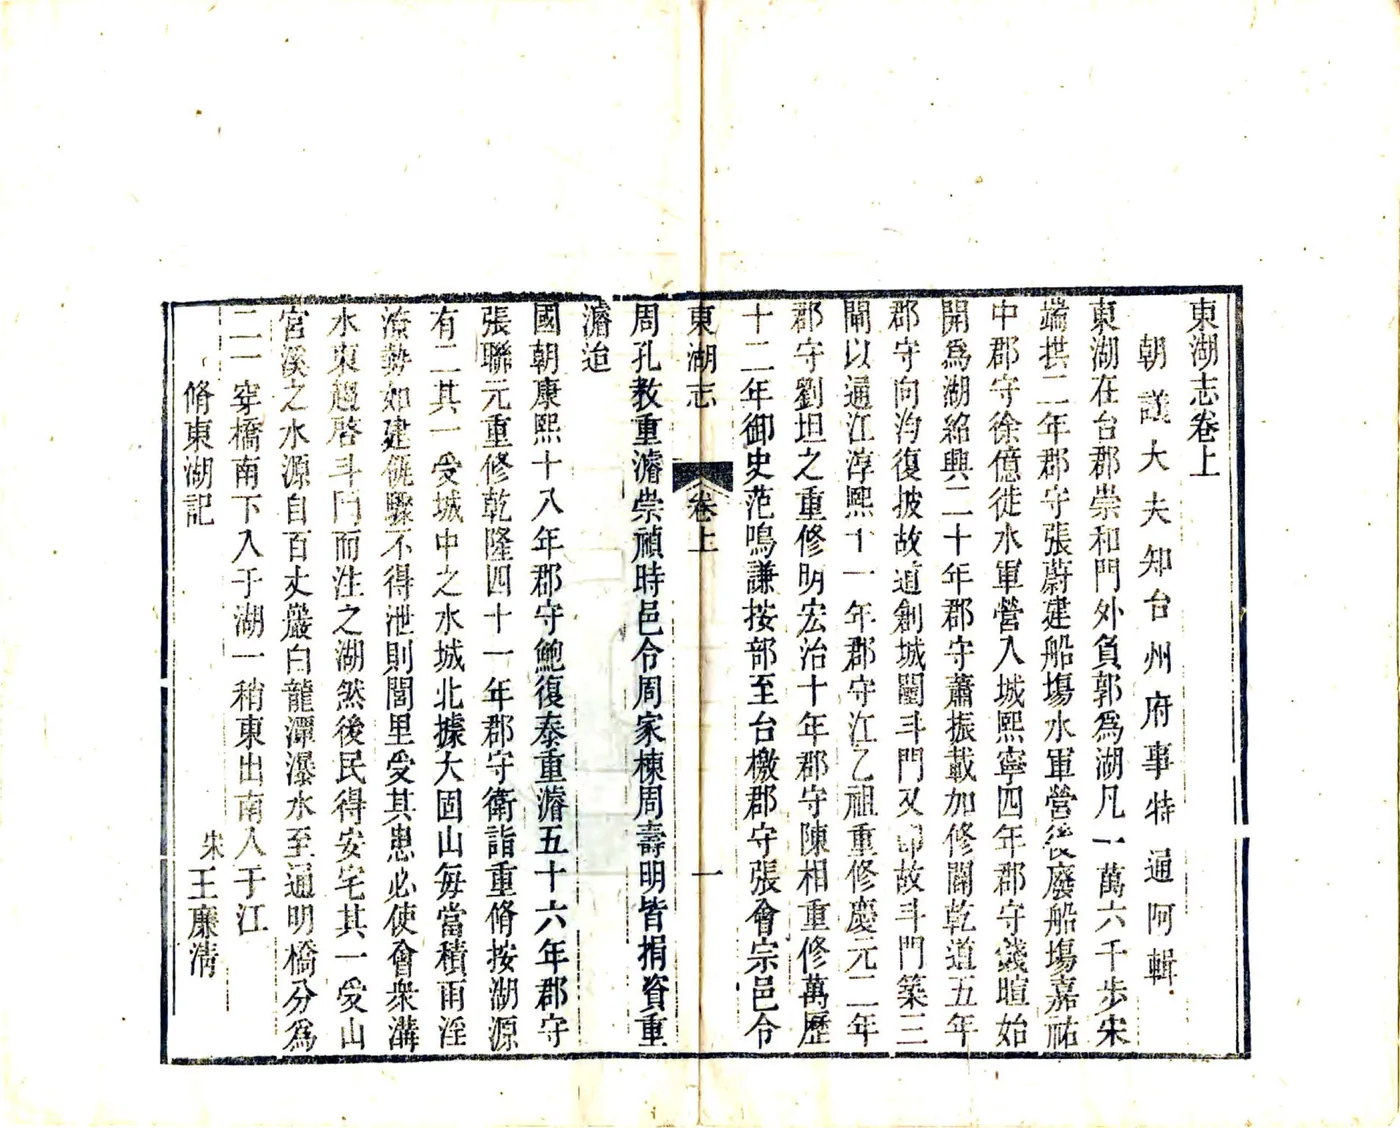 東湖志卷上
朝議大夫知台州府事特通阿輯
東湖在台郡崇和門外負郭爲湖凡一萬六千步宋
端拱二年郡守張蔚建船塲水軍營後廢船塲嘉祐
中郡守徐億徙水軍營入城熙寧四年郡守錢暄始
開爲湖紹興二十年郡守蕭振載加修闢乾道五年
郡守向沟復披故道創城闉斗門又卽故斗門築三
閘以通江淳熙十一年郡守江乙祖重修慶元二年
郡守劉坦之重修明宏治十年郡守陳相重修萬歷
十二年御史范鳴謙按部至台檄郡守張會宗邑令
東湖志 卷上 一
周孔教重濬崇禎時邑令周家棟周壽明皆捐資重
濬迨
國朝康熙十八年郡守鮑復泰重濬五十六年郡守
張聯元重修乾隆四十一年郡守衛詣重脩按湖源
有二其一受城中之水城北據大固山每當積雨淫
潦勢如建瓴驟不得泄則閭里受其患必使會衆溝
水東趨啓斗門而注之湖然後民得安宅其一受山
宮溪之水源自百丈巖白龍潭瀑水至通明橋分爲
二一穿橋南下入于湖一稍東出南入于江
脩東湖記 宋王廉淸